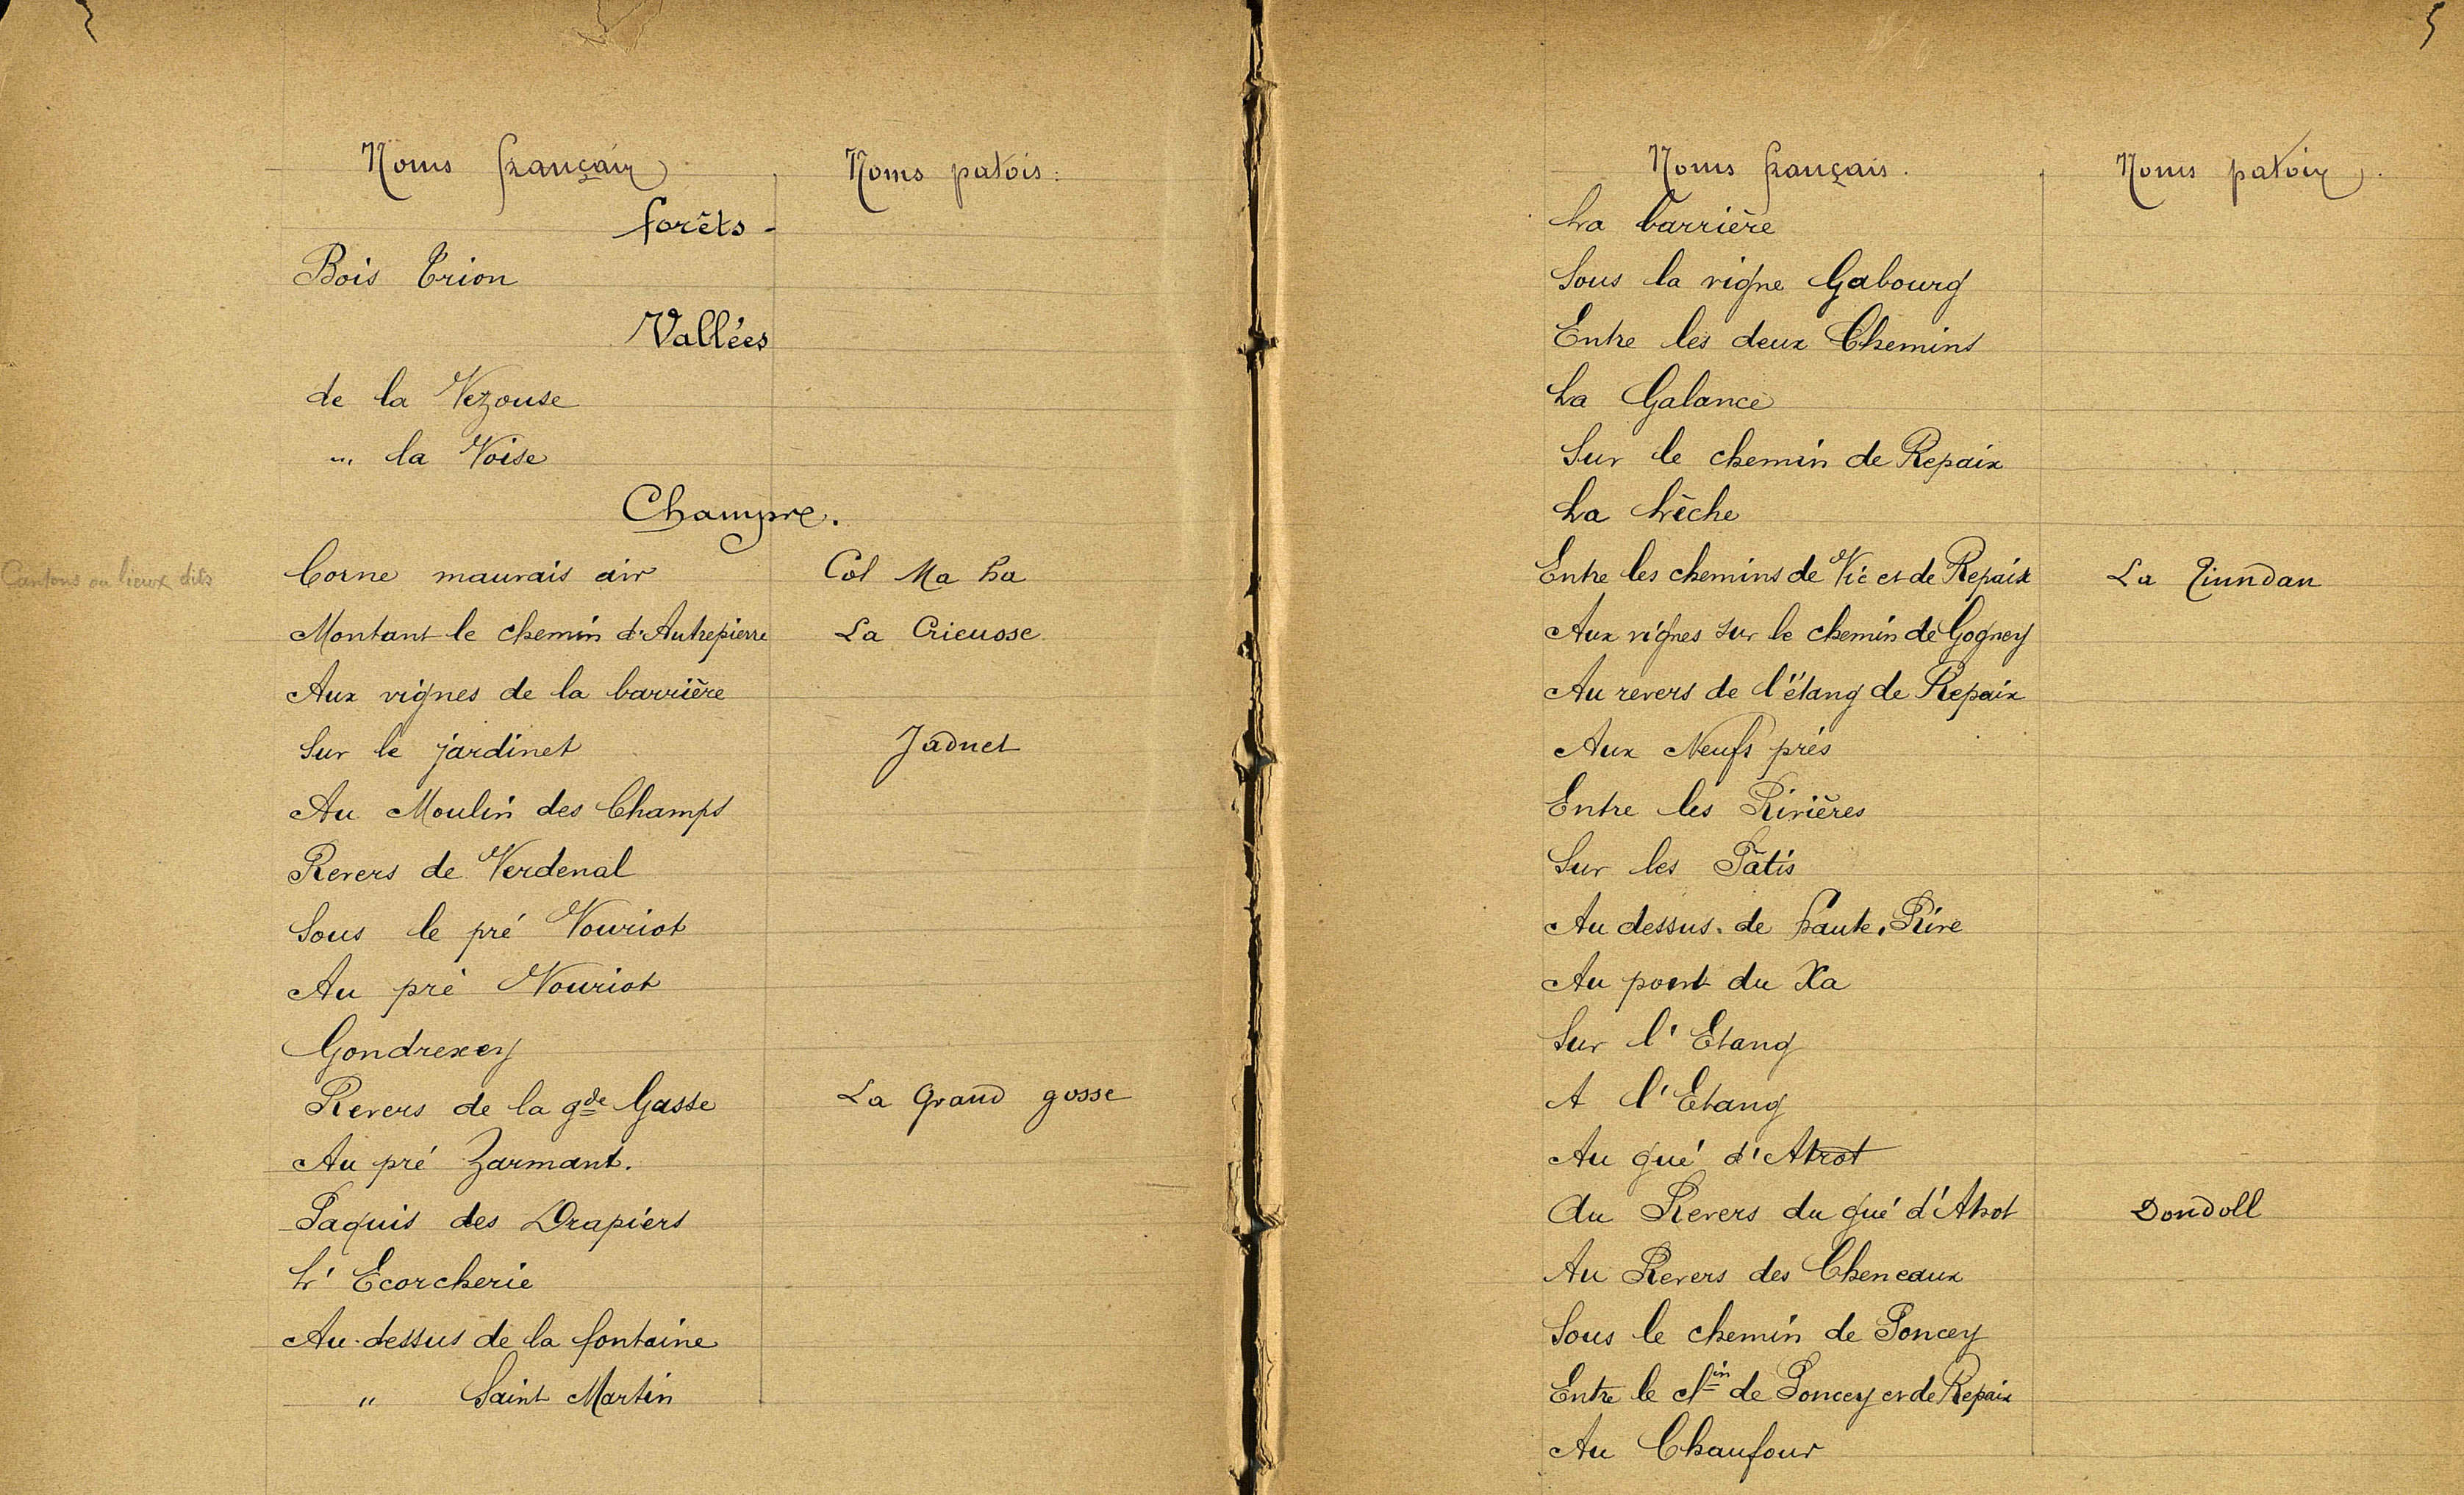 Noms français
Noms patois.
forêts -
Bois Trion
Vallées
de la Vezouse
" la Voise
Champre.
Cantons ou lieux dits
Corne mauvais air
Col Ma ha
Montant le chemin d'Autrepierre
La Crieusse
Aux vignes de la barrière
Sur le jardinet
Jadnet
Au Moulin des Champs
Revers de Verdenal
Sous le pré Vouriot
Au pré Vouriot
Gondrexey
Revers de la gde Gasse
La Grand gosse
Au pré Zarmant.
Paquis des Drapiers
L' Ecorcherie
Au-dessus de la fontaine
" Saint Martin
5
Noms français.
Noms patois.
La barrière
Sous la vigne Gabourg
Entre les deux Chemins
La Galance
Sur le chemin de Repaix
La Lèche
Entre les chemins de Vic et de Repaix
La
Aux vignes sur le chemin de Gogney
Au revers de l'étang de Repaix
Aux Neufs prés
Entre les Rivières
Sur les Pâtis
Au dessus de haute Rive
Au pont du Xa
Sur l' Etang
A l'Etang
Au gué d'Atrot
Au Revers du gué d'Atrot
Dondoll
Au Revers des Cheneaux
Sous le chemin de Poncey
Entre le chin de Poncey et de Repaix
Au Chaufour